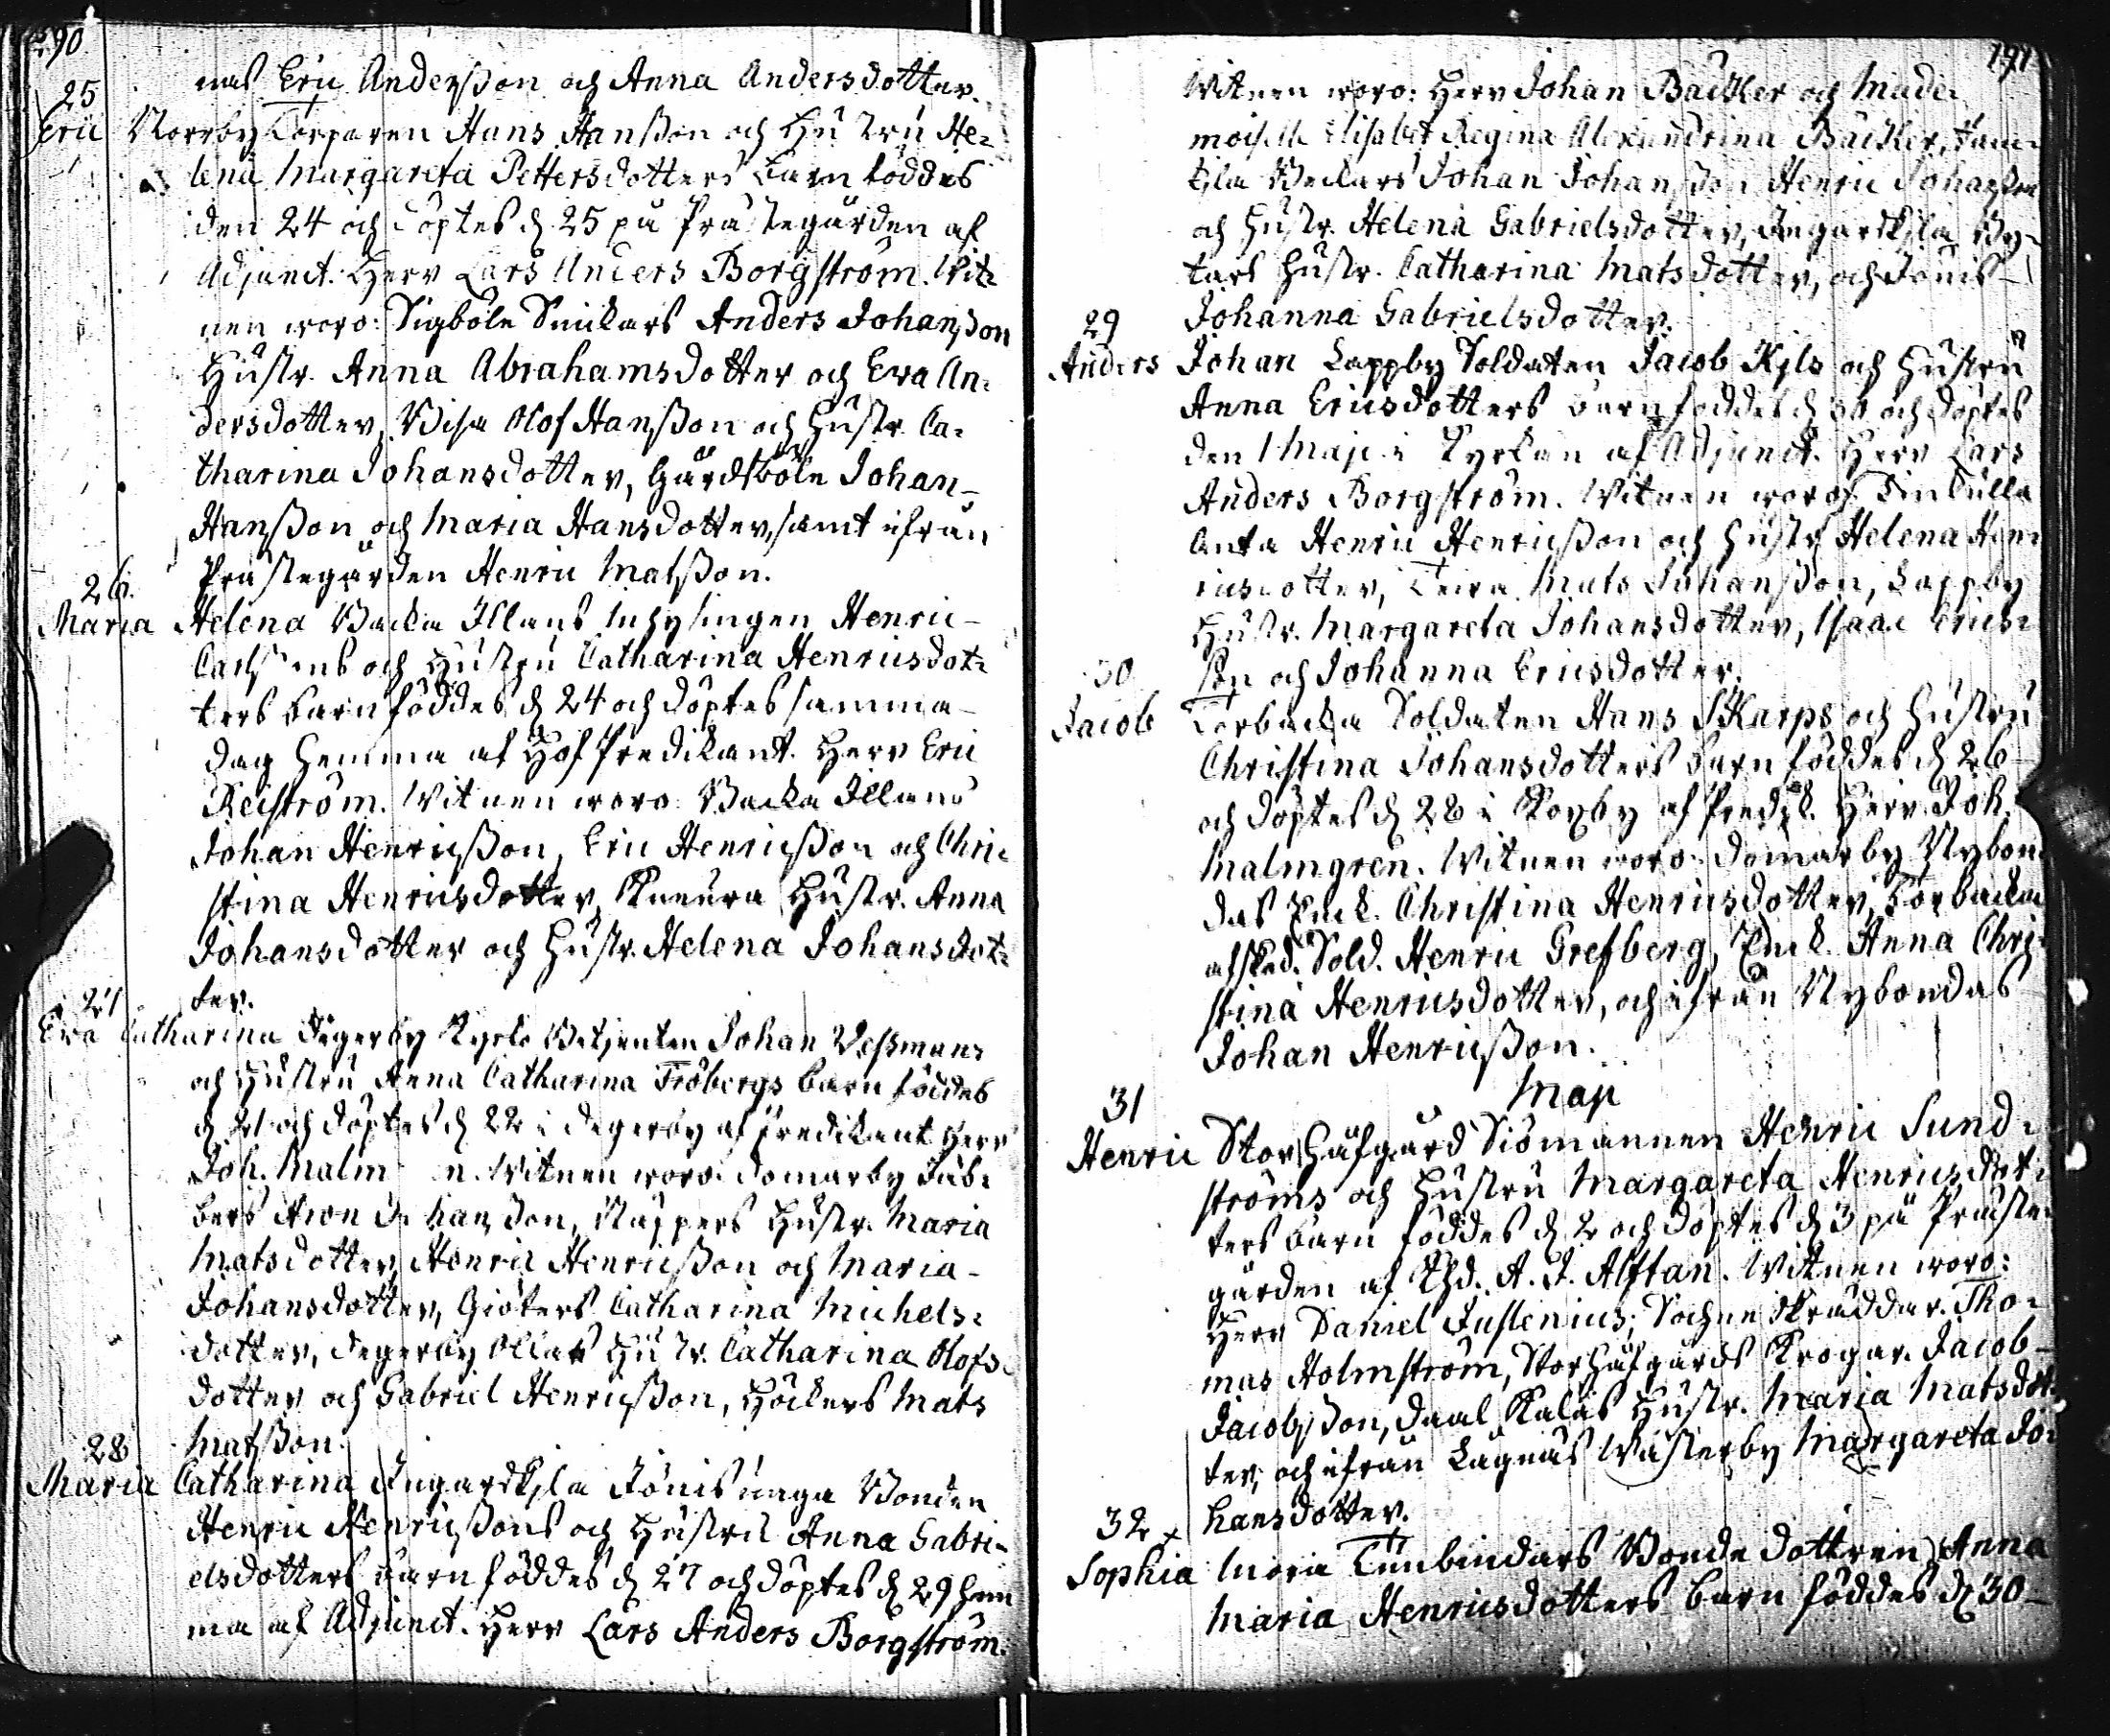 290
nas Eric Andersson och Anna Andersdotter.
25
Eric Norrby Torparen Hans Hansson och Hustru He-
lena Margareta Pettersdotters barn föddes
den 24 och döptes d. 25 på Prästegården af
Adjunct. Herr Lars Anders Borgström. Wit-
nen woro: Sigböle Snickars Anders Johansson
Hustr. Anna Abrahamsdotter och Eva An-
dersdotter, Wisa Olof Hansson och Hustr. Ca-
tharina Johansdotter, Gårdsböle Johan
Hansson och Maria Hansdotter, samt ifrån
Prästegården Henric Matsson.
26.
Maria Helena Backa Illans Inhysingen Henric
Carlsons och Hustru Catharina Henricsdot-
ters barn föddes d. 24 och döptes samma
dag hemma af HofPredikant. Herr Eric
Reiström. Witnen woro: Backa Illans
Johan Henricsson, Eric Henricsson och Chri-
stina Henricsdotter, Hustr. Anna
Johansdotter och Hustr. Helena Johansdot-
ter.
27
Eva Catharina Degerby Kyrko Betjenten Johan Wessmans
och Hustru Anna Catharina Fröbergs barn föddes
d. 21 och döptes d. 22 i Degerby af Predikant Herr
Joh. Malm n. Witnen woro: Domarby Jäb-
bers Johansson, Hustr. Maria
Matsdotter, Henric Henricsson och Maria
Johansdotter, Giöters Catharina Michels-
dotter, Degerby Hustr. Catharina Olofs-
dotter och Gabriel Henricsson, Höckers Mats
Matsson.
28
Maria Catharina Ingarskila Jönis unga Bonden
Henric Henricssons och Hustru Anna Gabri-
elsdotters barn föddes d. 27 och döptes d. 29 hem
ma af Adjunct. Herr Lars Anders Borgström.
191
Witnen woro: Herr Johan Backer och Made-
moiselle Elisabet Regina Alexandrina Backer,
Beckars Johan Johansson Henric Johansson
och Hustr. Helena Gabrielsdotter, Ingarskila By-
tars Hustr. Catharina Matsdotter, och Jönis
Johanna Gabrielsdotter.
29
Anders Johan Lappby Soldaten Jacob Kyls och Hustru
Anna Ericsdotters barn föddes d. 30 och döptes
den 1 Maji i Kyrkan af Adjunct. Herr Lars
Anders Borgström. Witnen woro: Finkulla
Anta Henric Henricsson och Hustr. Helena Hen-
ricsdotter, Mats Johansson, Lappby
Hustr. Margareta Johansdotter, Isaac Erics-
son och Johanna Ericsdotter.
30
Jacob Torbacka Soldaten Hans Skarps och Hustru
Christina Johansdotters barn föddes d. 26
och döptes d. 28 i af Predik. Herr Joh.
Malmgren. Witnen woro: Domarby Nybon-
das Enck. Christina Henricsdotter, Torbacka
afsked. Sold. Henric Grefberg, Enck. Anna Chri-
stina Henricsdotter, och ifrån Nybondas
Johan Henricsson.
Maji
31
Henric Stor Håfgård Siömannen Henric Sund-
ströms och Hustru Margareta Henricsdot-
ters barn föddes d. 2 och döptes d. 3 på Präste-
gården af A. J. Alftan. Witnen woro:
Herr Daniel Juslenius, Sochne Skräddar. Tho-
mas Holmström, Stor Håfgårds Krogar. Jacob
Jacobsson, Daal Kalas Hustr. Maria Matsdot-
ter, och ifrån Lagnäs Wästerby Margareta Jo-
hansdotter.
32
Sophia Maria Tunbindars Bonde dottren Anna
Maria Henricsdotters barn föddes d. 30